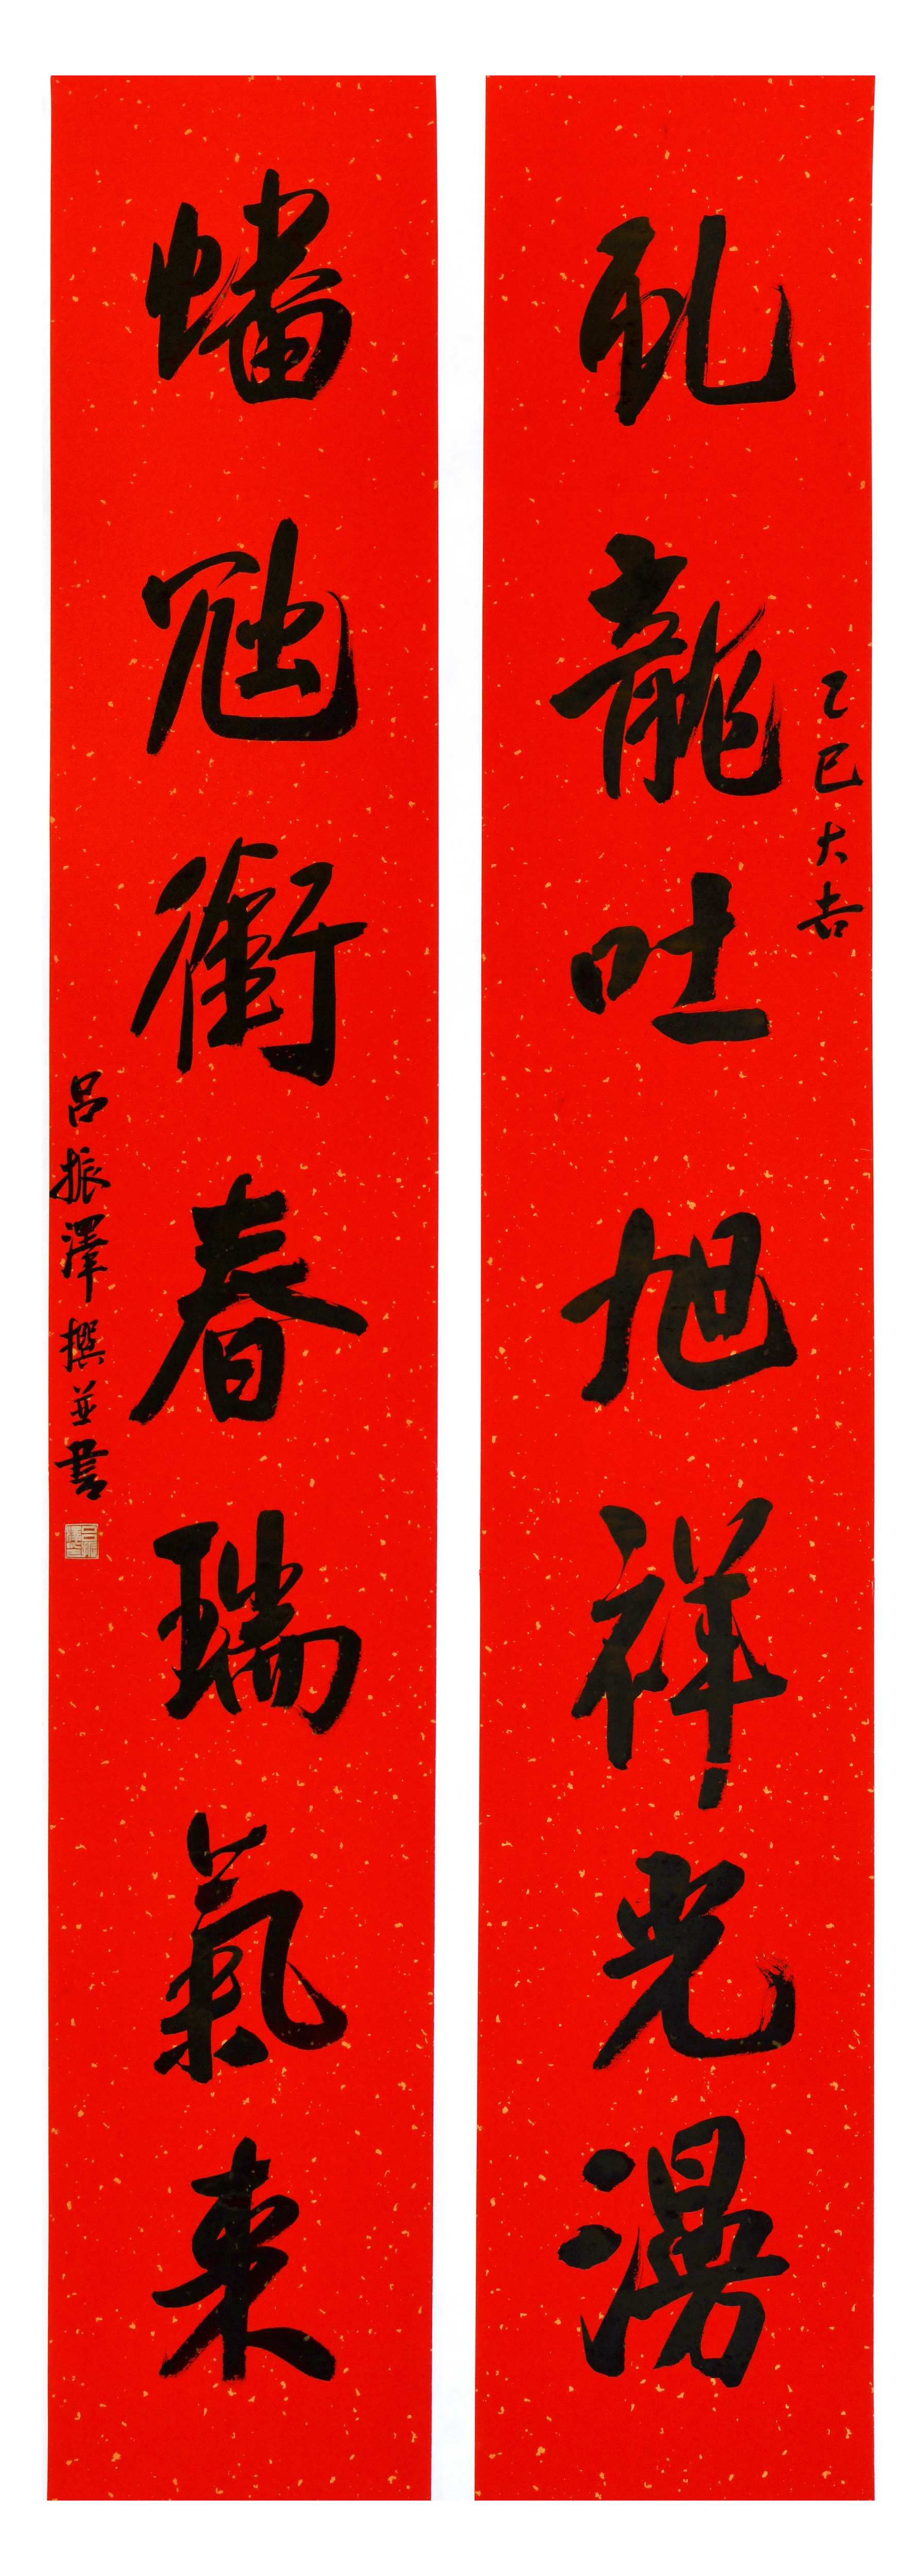 虬龍吐旭祥光漫
乙巳大吉
蟠虺銜春瑞氣来
呂振澤撰並書